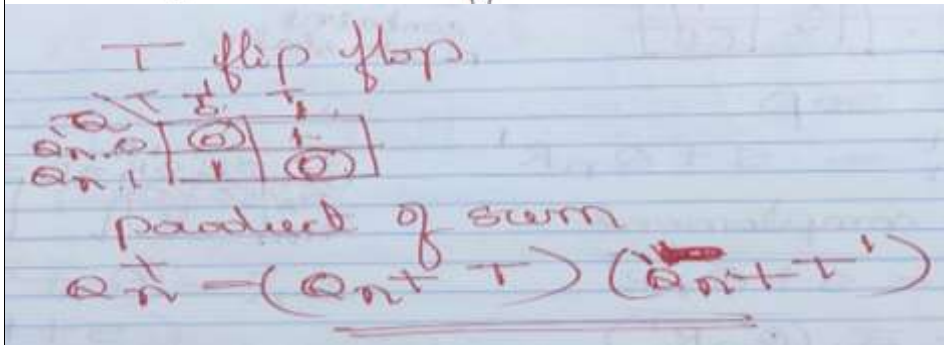 T flip flop.
T T' T
Q
Qn' 0 0 1
Qn 1 1 0
product of sum
Qn+ = (Qn + T) (Qn' + T')